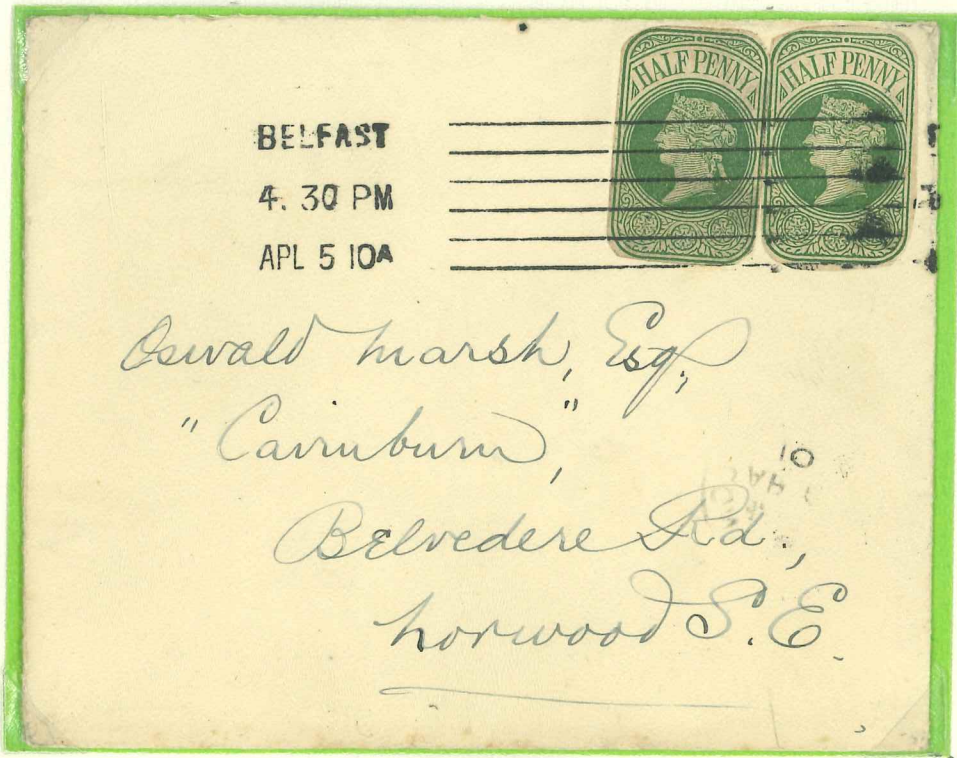 HALF PENNY HALF PENNY
BELFAST
4. 30 PM
APL 5 10A
Oswald Marsh, Esq.,
"Cairnburn",
Belvedere Rd.,
Norwood S.E.
10